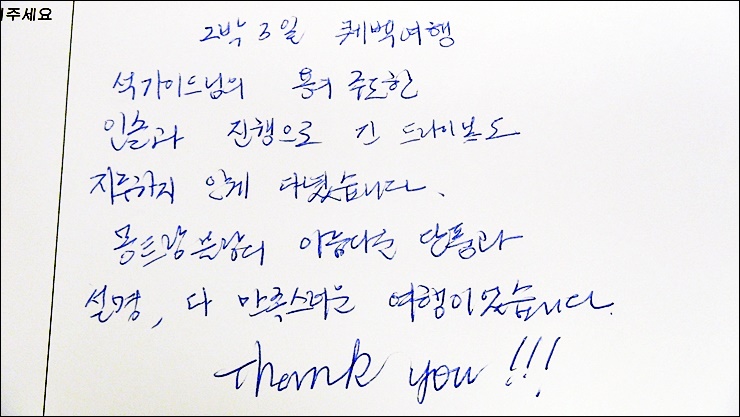 어주세요
2박 3일 퀘벡여행
석가이드님의 용의 주도한
인솔과 진행으로 긴 드라이브도
지루하지 않게 다녔습니다.
몽트랑블랑의 아름다운 단풍과
설경, 다 만족스러운 여행이었습니다.
Thank you !!!